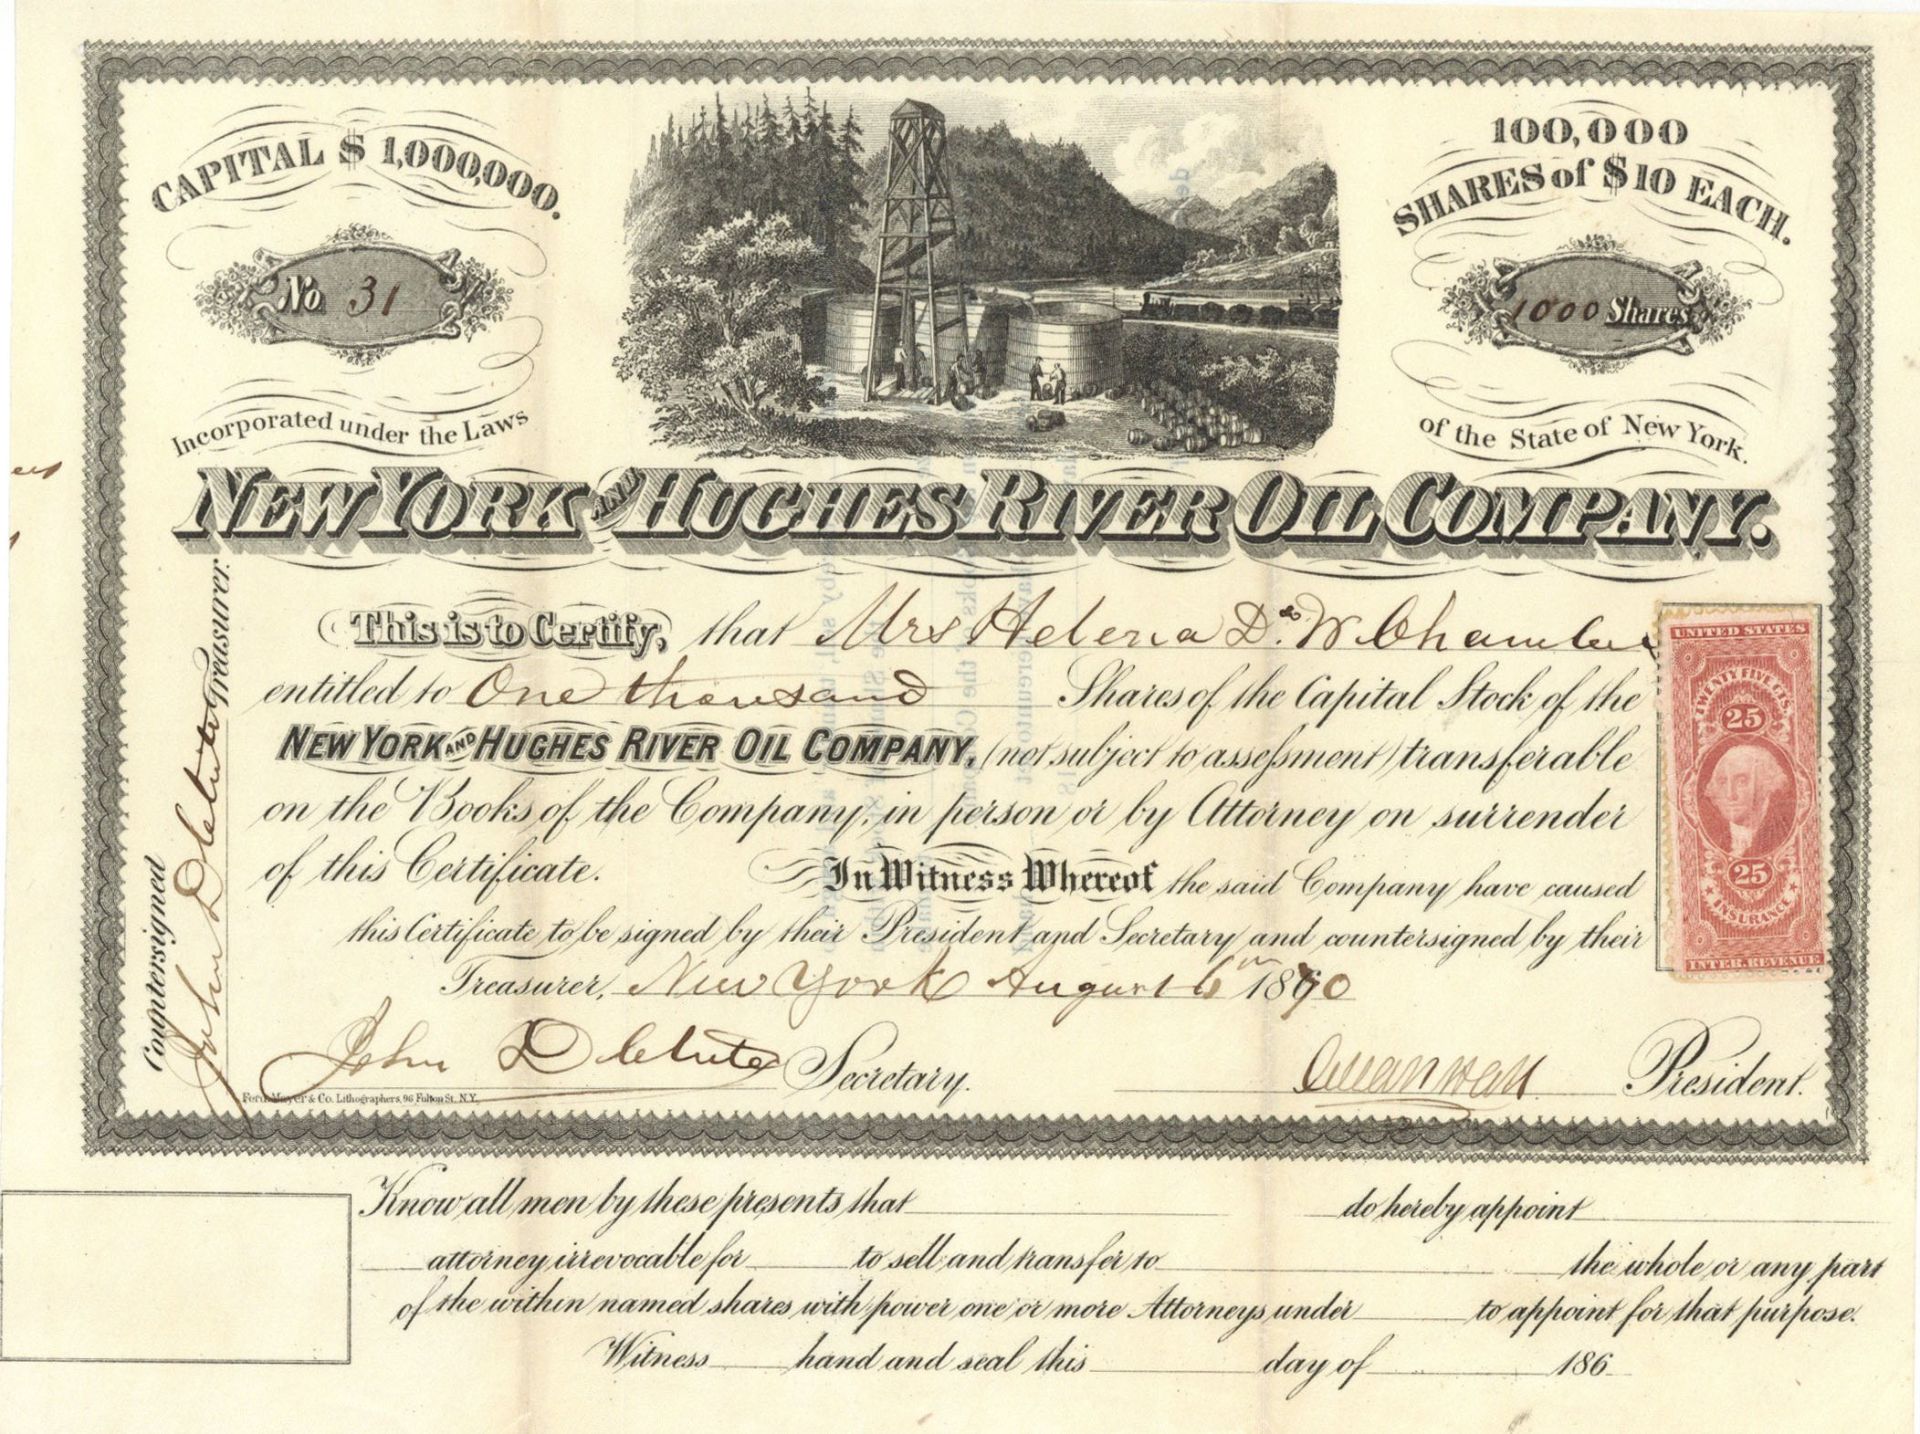 CAPITAL $ 1,000,000.
100,000
SHARES of $10 EACH.
No 31
1000 Shares
Incorporated under the Laws
of the State of New York.
NEW YORK AND HUGHES RIVER OIL COMPANY.
This is to Certify, that Mrs Helena De W. Chamber
entitled to One thousand Shares of the Capital Stock of the
NEW YORK AND HUGHES RIVER OIL COMPANY, (not subject to assessment) transferable
on the Books of the Company, in person or by Attorney on surrender
of this Certificate. In Witness Whereof the said Company have caused
this Certificate to be signed by their President and Secretary and countersigned by their
Treasurer, New York August 6th 1870
John Secretary. President.
Ferd. Mayer & Co. Lithographers, 96 Fulton St. N.Y.
Countersigned
John Treasurer.
UNITED STATES
TWENTY FIVE CTS.
25
25
INSURANCE
INTER. REVENUE
Know all men by these presents that do hereby appoint
attorney irrevocable for to sell and transfer to the whole or any part
of the within named shares with power one or more Attorneys under to appoint for that purpose.
Witness hand and seal this day of 186